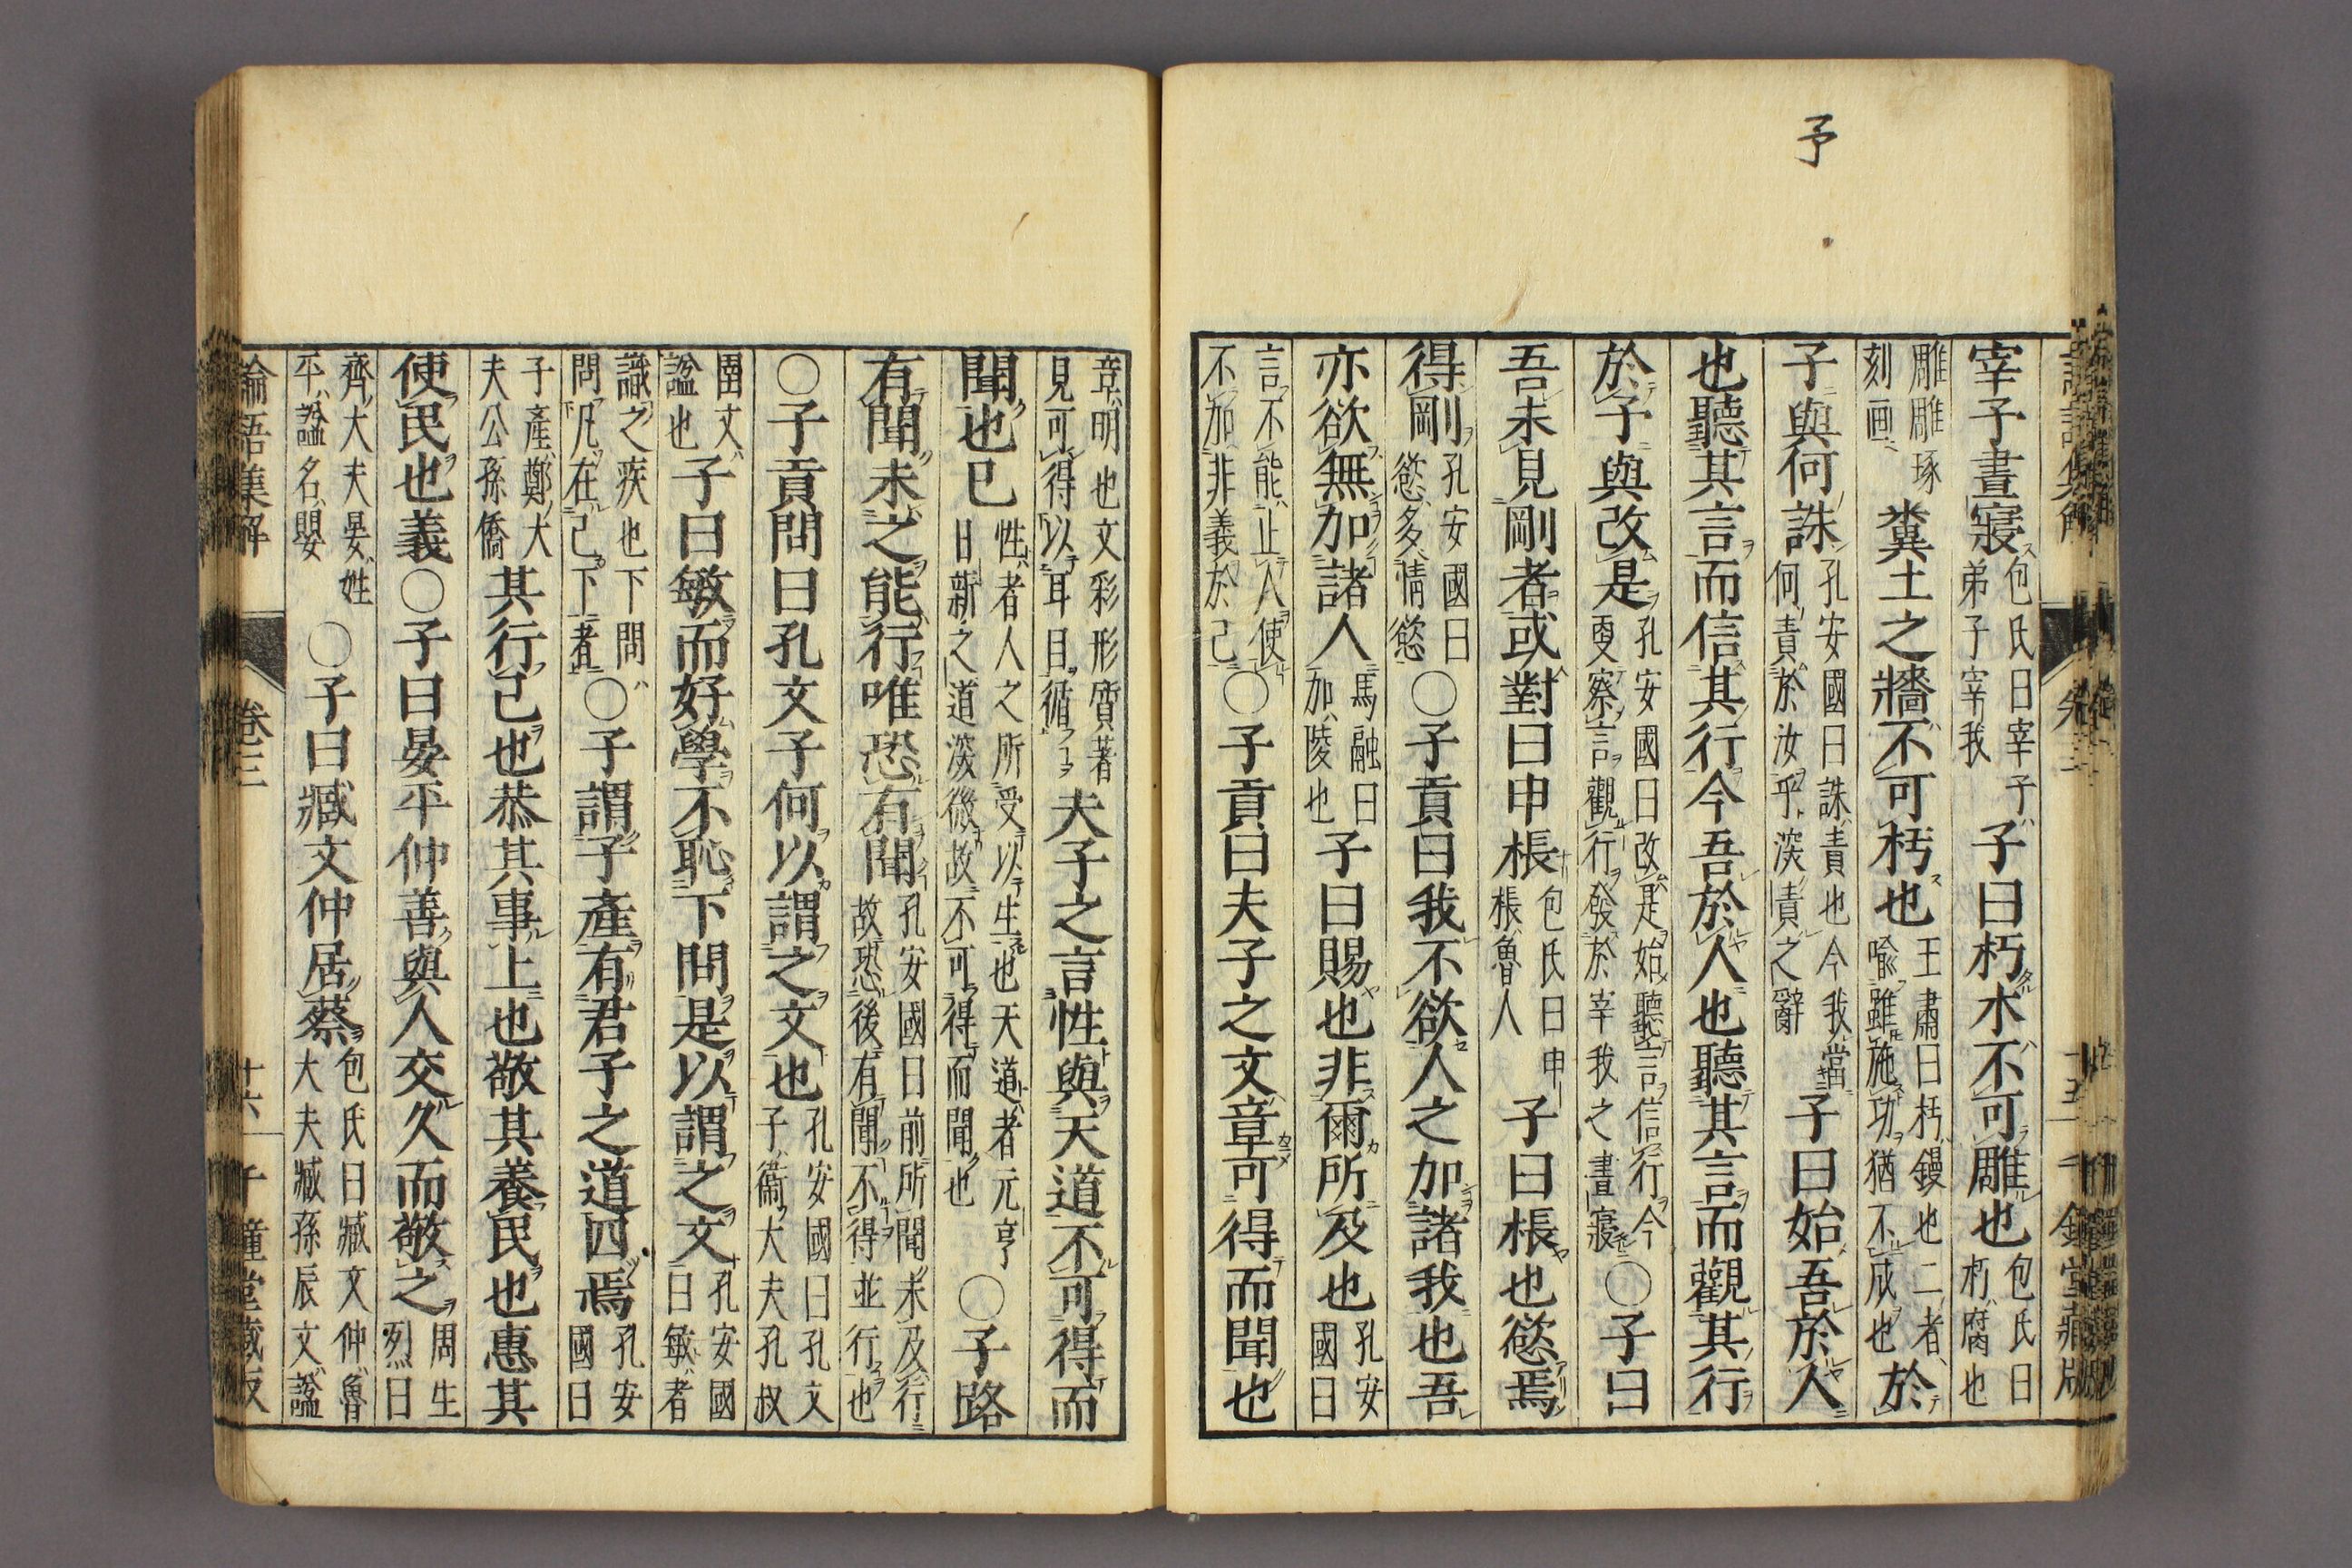 予
宰予晝寢包氏曰宰予弟子宰我子曰朽木不可雕也包氏曰朽腐也
雕雕琢刻画糞土之牆不可杇也王肅曰杇鏝也二者喩雖施功猶不成也於
予與何誅孔安國曰誅責也今我當何責於汝乎深責之辭子曰始吾於人
也聽其言而信其行今吾於人也聽其言而觀其行
於予與改是孔安國曰改是始聽言信行今更察言觀行發於宰我之晝寢〇子曰
吾未見剛者或對曰申棖包氏曰申棖魯人子曰棖也慾焉
得剛孔安國曰慾多情慾〇子貢曰我不欲人之加諸我也吾
亦欲無加諸人馬融曰加陵也子曰賜也非爾所及也孔安國曰
言不能止人使不加非義於己〇子貢曰夫子之文章可得而聞也
章明也文彩形質著見可得以耳目循夫子之言性與天道不可得而
聞也已性者人之所受以生也天道者元亨日新之道深微故不可得而聞也〇子路
有聞未之能行唯恐有聞孔安國曰前所聞未及行故恐後有聞不得並行也
〇子貢問曰孔文子何以謂之文也孔安國曰孔文子衞大夫孔叔
圉文諡也子曰敏而好學不恥下問是以謂之文孔安國曰敏者
識之疾也下問問凡在己下者〇子謂子產有君子之道四焉孔安國曰
子產鄭大夫公孫僑其行己也恭其事上也敬其養民也惠其
使民也義〇子曰晏平仲善與人交久而敬之周生烈曰
齊大夫晏姓平諡名嬰〇子曰臧文仲居蔡包氏曰臧文仲魯大夫臧孫辰文諡
論語集解 卷三 十六 千鍾堂藏板